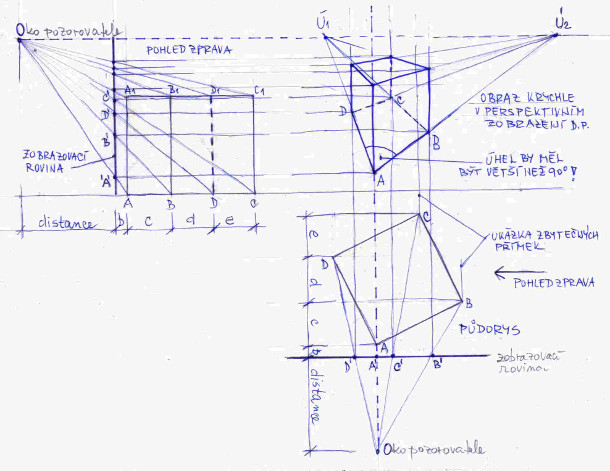 Oko pozorovatele
Ú1
Ú2
POHLED ZPRAVA
A1 B1 D1 C1
C'
D'
B'
'A'
ZOBRAZOVACÍ
ROVINA
A B D C
distance b c d e
D
C
B
A
OBRAZ KRYCHLE
V PERSPEKTIVNÍM
ZOBRAZENÍ D.P.
ÚHEL BY MĚL
BÝT VĚTŠÍ NEŽ 90°!
C
D
B
A
e
d
c
b
distance
UKÁZKA ZBYTEČNÝCH
PŘÍMEK
POHLED ZPRAVA
PŮDORYS
D' A' C' B'
zobrazovací
rovina
Oko pozorovatele